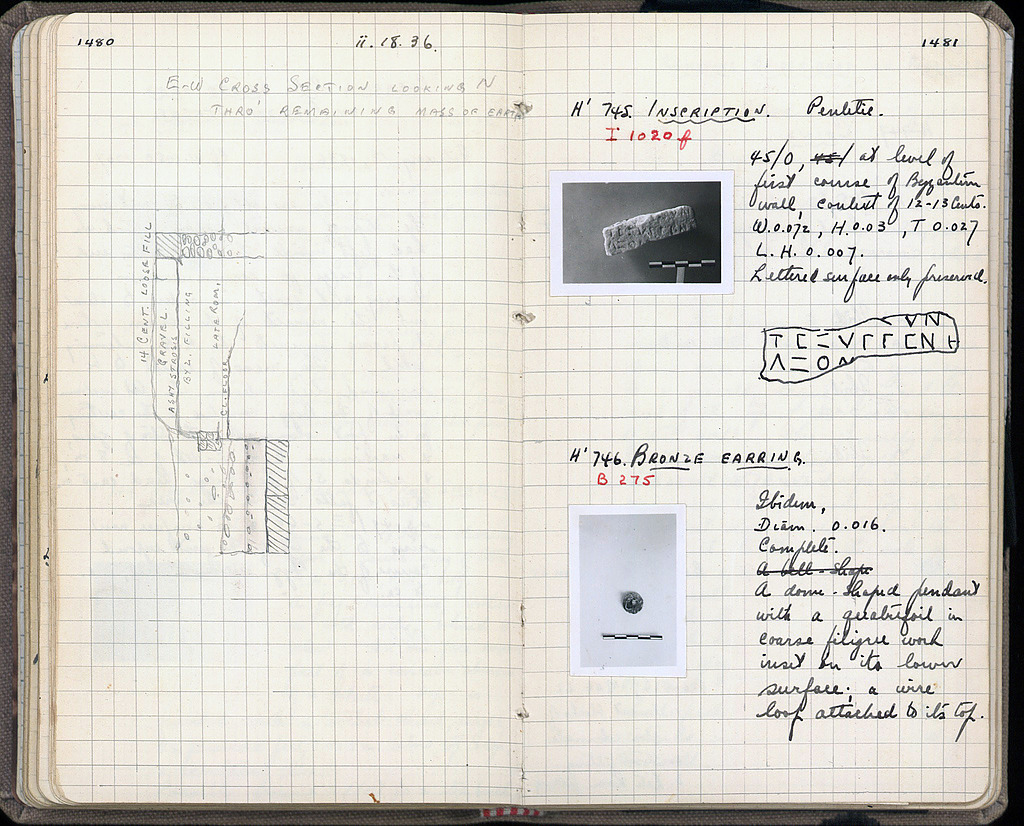 1480
ii. 18. 36.
E-W CROSS SECTION LOOKING N
THRO' REMAINING MASS OF EARTH
14 CENT. LOOSE FILL
GRAVEL
ASHY STROSIS
BYZ. FILLING
CL. FLOOR LATE ROM.
1481
H' 745. INSCRIPTION. Pentelic.
I 1020 f
45/0, 45/ at level of
first course of Byzantine
wall, context of 12-13 Cents.
W. 0.072, H. 0.03, T 0.027
L. H. 0.007.
Lettered surface only preserved.
H' 746. BRONZE EARRING.
B 275
Ibidem,
Diam. 0.016.
Complete.
A bell-shape
A dome-shaped pendant
with a quatrefoil in
coarse filigree work
inset on its lower
surface; a wire
loop attached to its top.